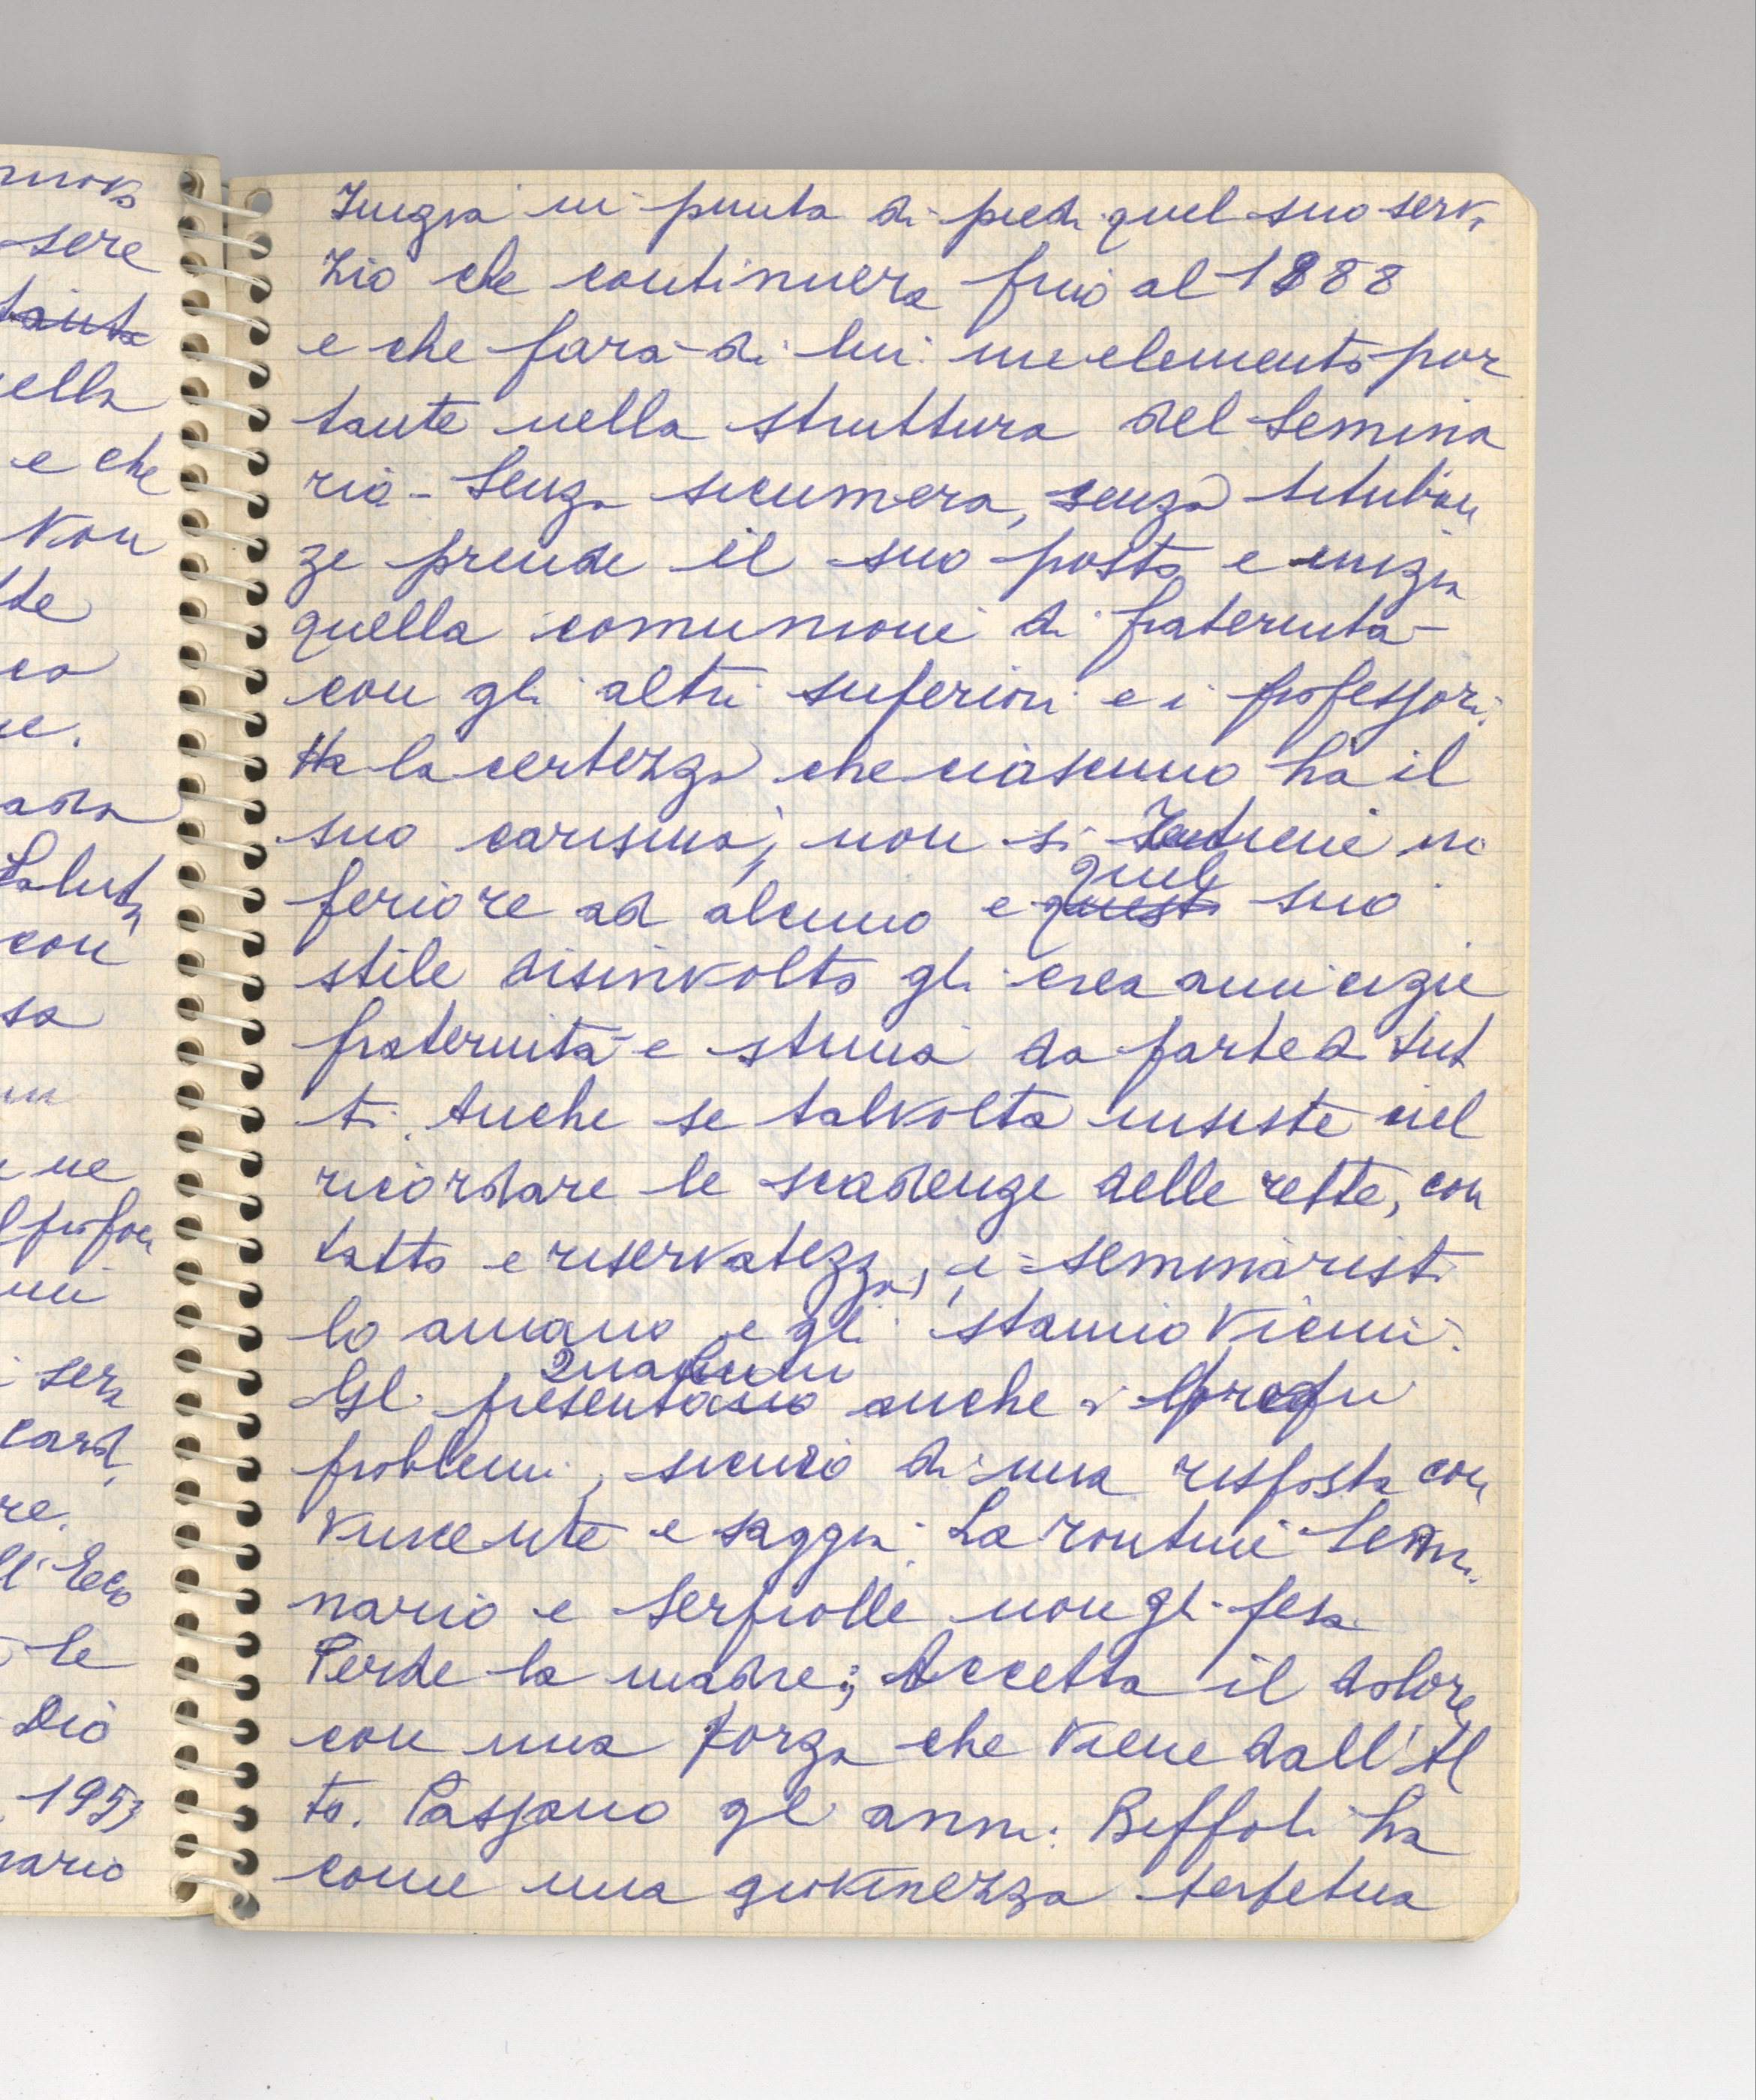 Inizia in punta di piedi quel suo servi
zio che continuerà fino al 1988
e che farà di lui un elemento por
tante nella struttura del Semina
rio - Senza sicumera, senza tituban
ze prende il suo posto e inizia
quella comunione di fraternità
con gli altri superiori e i professori.
Ha la certezza che ciascuno ha il
suo carisma; non si ritiene in
feriore ad alcuno e quel suo
stile disinvolto gli crea amicizie
fraternità e stima da parte di tut
ti. Anche se talvolta insiste nel
ricordare le scadenze delle rette, con
tatto e riservatezza, i seminaristi
lo amano e gli stanno vicini.
Qualcuno
Gli presenta anche i propri
problemi, sicuro di una risposta con
vincente e saggia. La routine Semi
nario e Serpiolle non gli pesa
Perde la madre; Accetta il dolore
con una forza che viene dall'Al
to. Passano gli anni. Biffoli ha
come una giovinezza perpetua
sere
ella
e che
Non
te
co
ne.
Saluta
con
sa
un
ne
ni
i sera
card.
re.
l'Eco
le
Dio
1953
nario